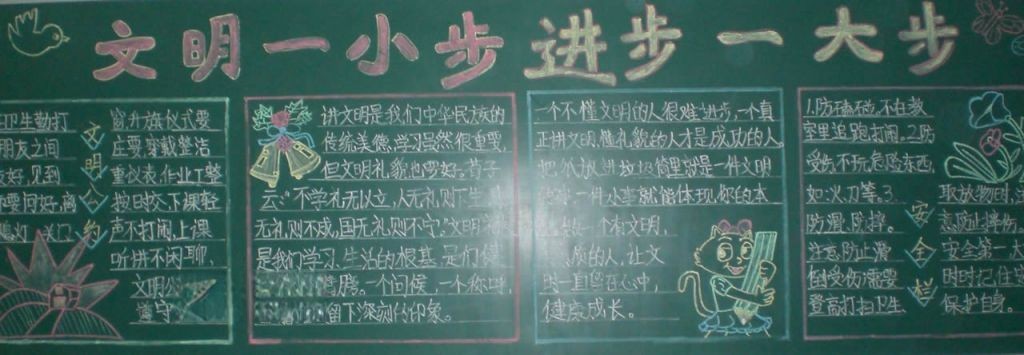 文明一小步 进步一大步
生勤打
朋友之间
好,见到
要问好,离
关门
文明公约
窗升旗仪式要
庄要穿戴整洁
重仪表,作业工整
按时交,下课轻
声不打闹,上课
听讲不闲聊,
文明公
遵守
讲文明是我们中华民族的
传统美德,学习虽然很重要,
但文明礼貌也要好。荀子
云:“不学礼无以立,人无礼则不生,
无礼则不成,国无礼则不宁。”文明
是我们学习、生活的根基,是们健
腾。一个问候,一个称呼,
留下深刻的印象。
一个不懂文明的人很难进步,一个真
正讲文明,懂礼貌的人才是成功的人。
把 放进垃圾筒里就是一件文明
一件小事就能体现你的本
做一个有文明,
质的人,让文
明一直留在心中,
健康成长。
1.防磕碰,不在教
室里追跑打闹。2.防
受伤,不玩危险东西,
如:火刀等。3.
防滑,防摔。
注意,防止滑
倒受伤,需要
登高打扫卫生、
安全栏
取放物时,
意防止摔伤。
安全第一,
时时记住
保护自身。